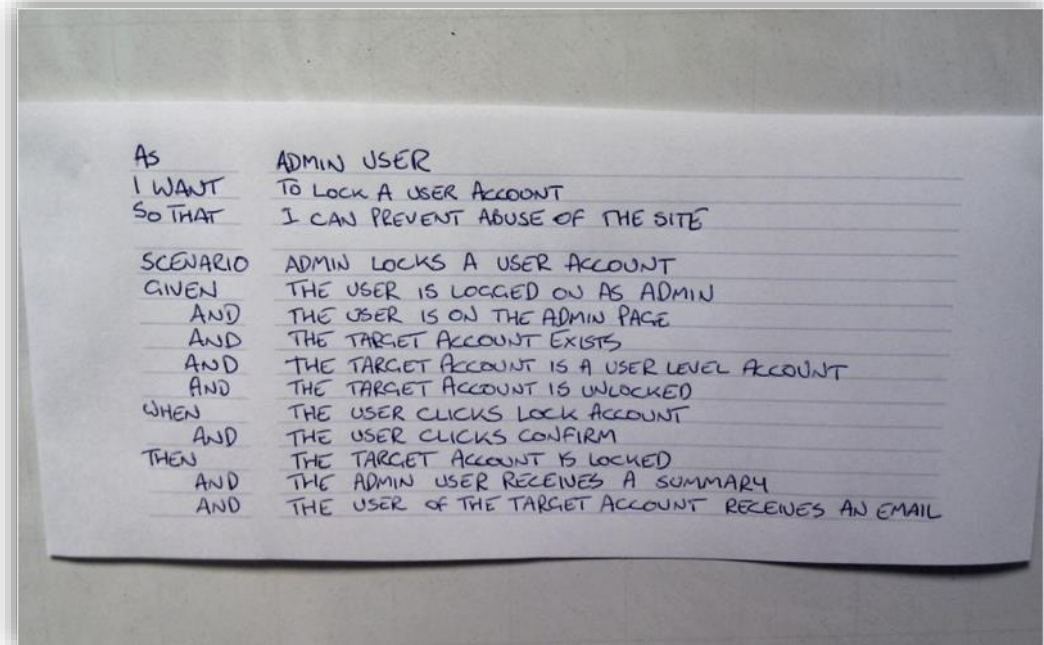 As ADMIN USER
I WANT TO LOCK A USER ACCOUNT
SO THAT I CAN PREVENT ABUSE OF THE SITE
SCENARIO ADMIN LOCKS A USER ACCOUNT
GIVEN THE USER IS LOGGED ON AS ADMIN
AND THE USER IS ON THE ADMIN PAGE
AND THE TARGET ACCOUNT EXISTS
AND THE TARGET ACCOUNT IS A USER LEVEL ACCOUNT
AND THE TARGET ACCOUNT IS UNLOCKED
WHEN THE USER CLICKS LOCK ACCOUNT
AND THE USER CLICKS CONFIRM
THEN THE TARGET ACCOUNT IS LOCKED
AND THE ADMIN USER RECEIVES A SUMMARY
AND THE USER OF THE TARGET ACCOUNT RECEIVES AN EMAIL